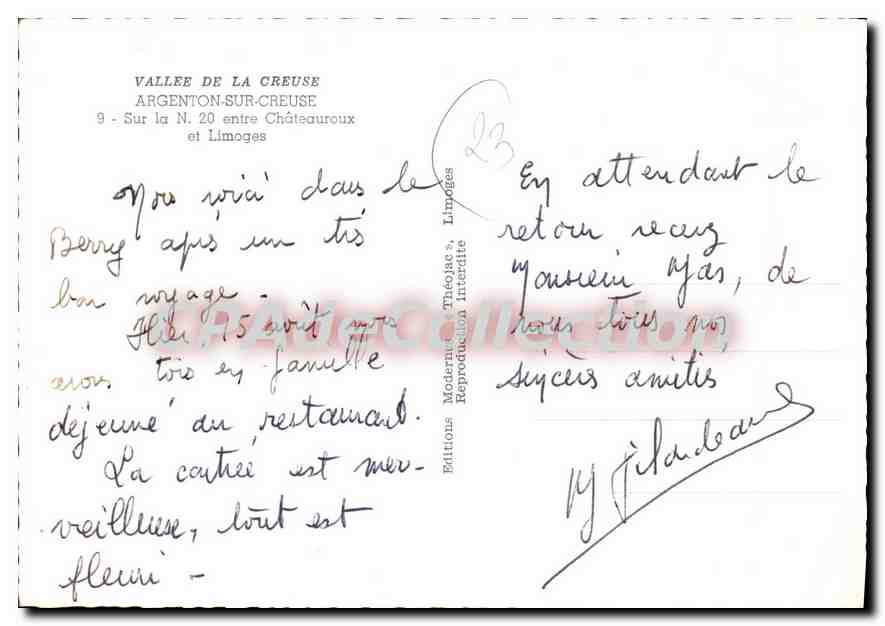 VALLEE DE LA CREUSE
ARGENTON-SUR-CREUSE
9 - Sur la N. 20 entre Châteauroux
et Limoges
23
Nous voici dans le
Berry après un très
bon voyage.
Hier 15 août nous
avons tous en famille
déjeuné au restaurant.
La contrée est mer-
veilleuse, tout est
fleuri -
Editions Modernes « Théojac », Limoges
Reproduction interdite
En attendant le
retour recevez
Monsieur Mas, de
nous tous nos
sincères amitiés
CPA de Collection